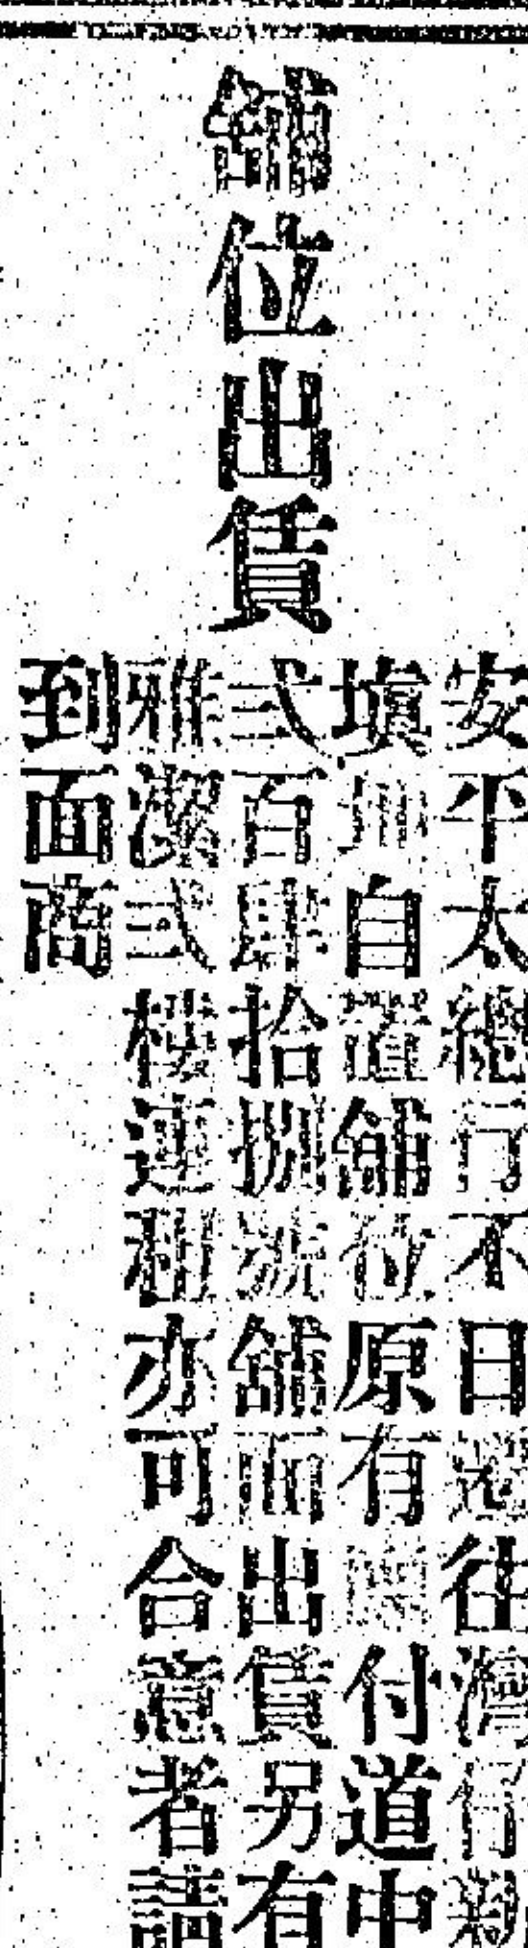 舖位出賃
安平太總行不日遷往灣仔新
填自置舖位原有付道中
弍百肆拾捌號舖面出賃另有
雅潔弍樓連租亦可合意者請
到面商